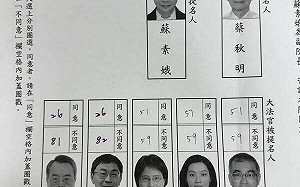 蔡秋明
提名人
蘇素娥
大法官被提名人
同意 51 不同意 59
同意 51 不同意 59
同意 51 不同意 59
同意 26 不同意 82
同意 26 不同意 81
選上分別圈選。同意者，請在「同意」
「不同意」欄空格內加蓋圈戳。
欄空格內加蓋圈戳。